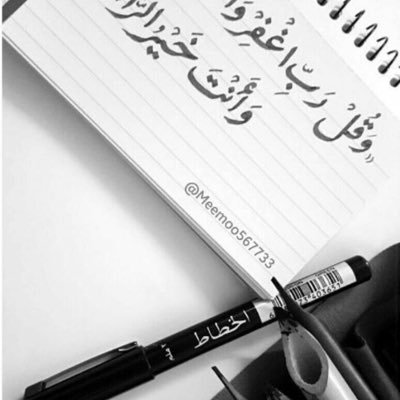 «وَقُلْ رَبِّ اغْفِرْ وَا
وَأَنْتَ خَيْرُ الرَّا
@Meemoo567733
الخطاط